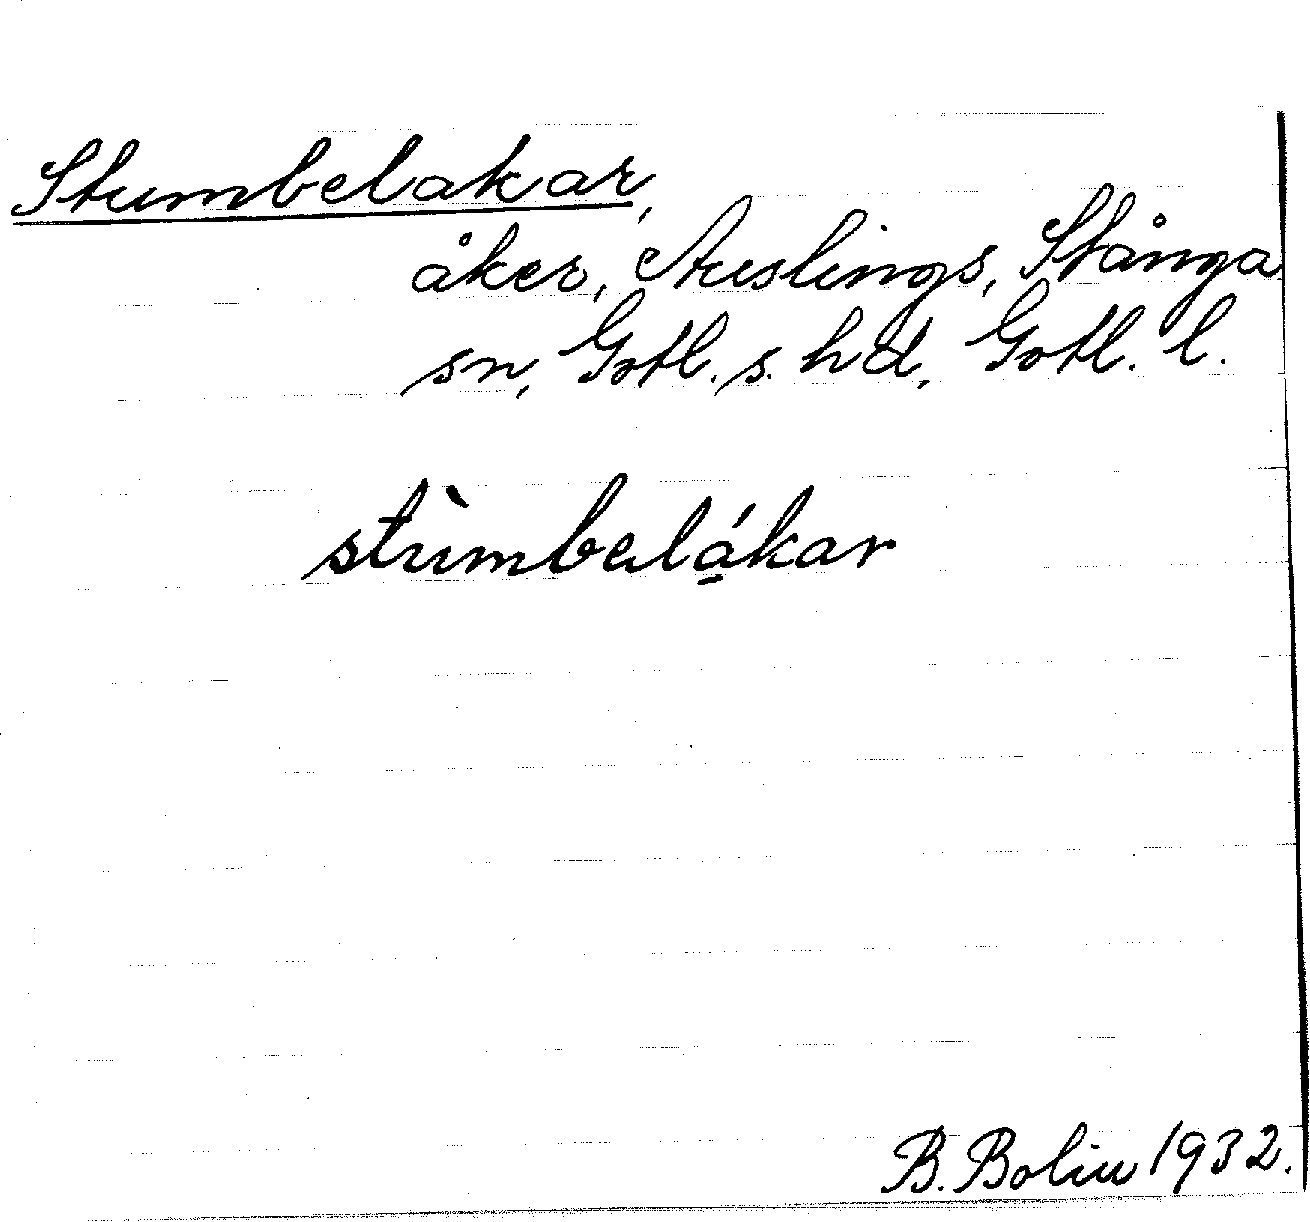 Stumbelakar,
åker, Auslings, Stånga
sn, Gotl. s. hd, Gotl. l.
stùmbelákar
B. Bolin 1932.